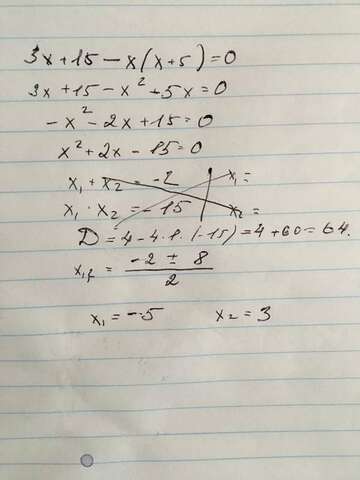 3x+15-x(x+5)=0
3x+15-x²-5x=0
-x²-2x+15=0
x²+2x-15=0
x₁+x₂=-2 x₁=
x₁·x₂=-15 x₂=
D=4-4·1·(-15)=4+60=64.
x₁,₂=(-2±8)/2
x₁=-5 x₂=3